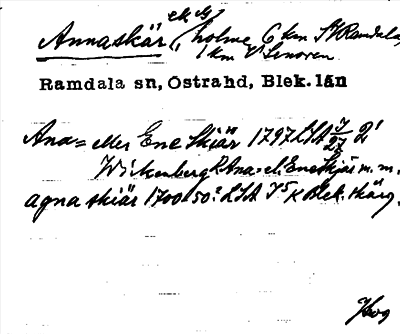 Annaskär, holme 6 km SV Ramdala,
1 km V Senoren.
Ramdala sn, Östrahd, Blek.län
Ana= eller Ene Skiär 1797 LSA 7/27 2'
Wickenberg Ana= el. EneSkjär m.m.
agna skiär 1700-50: LSA K Blek. skärg.